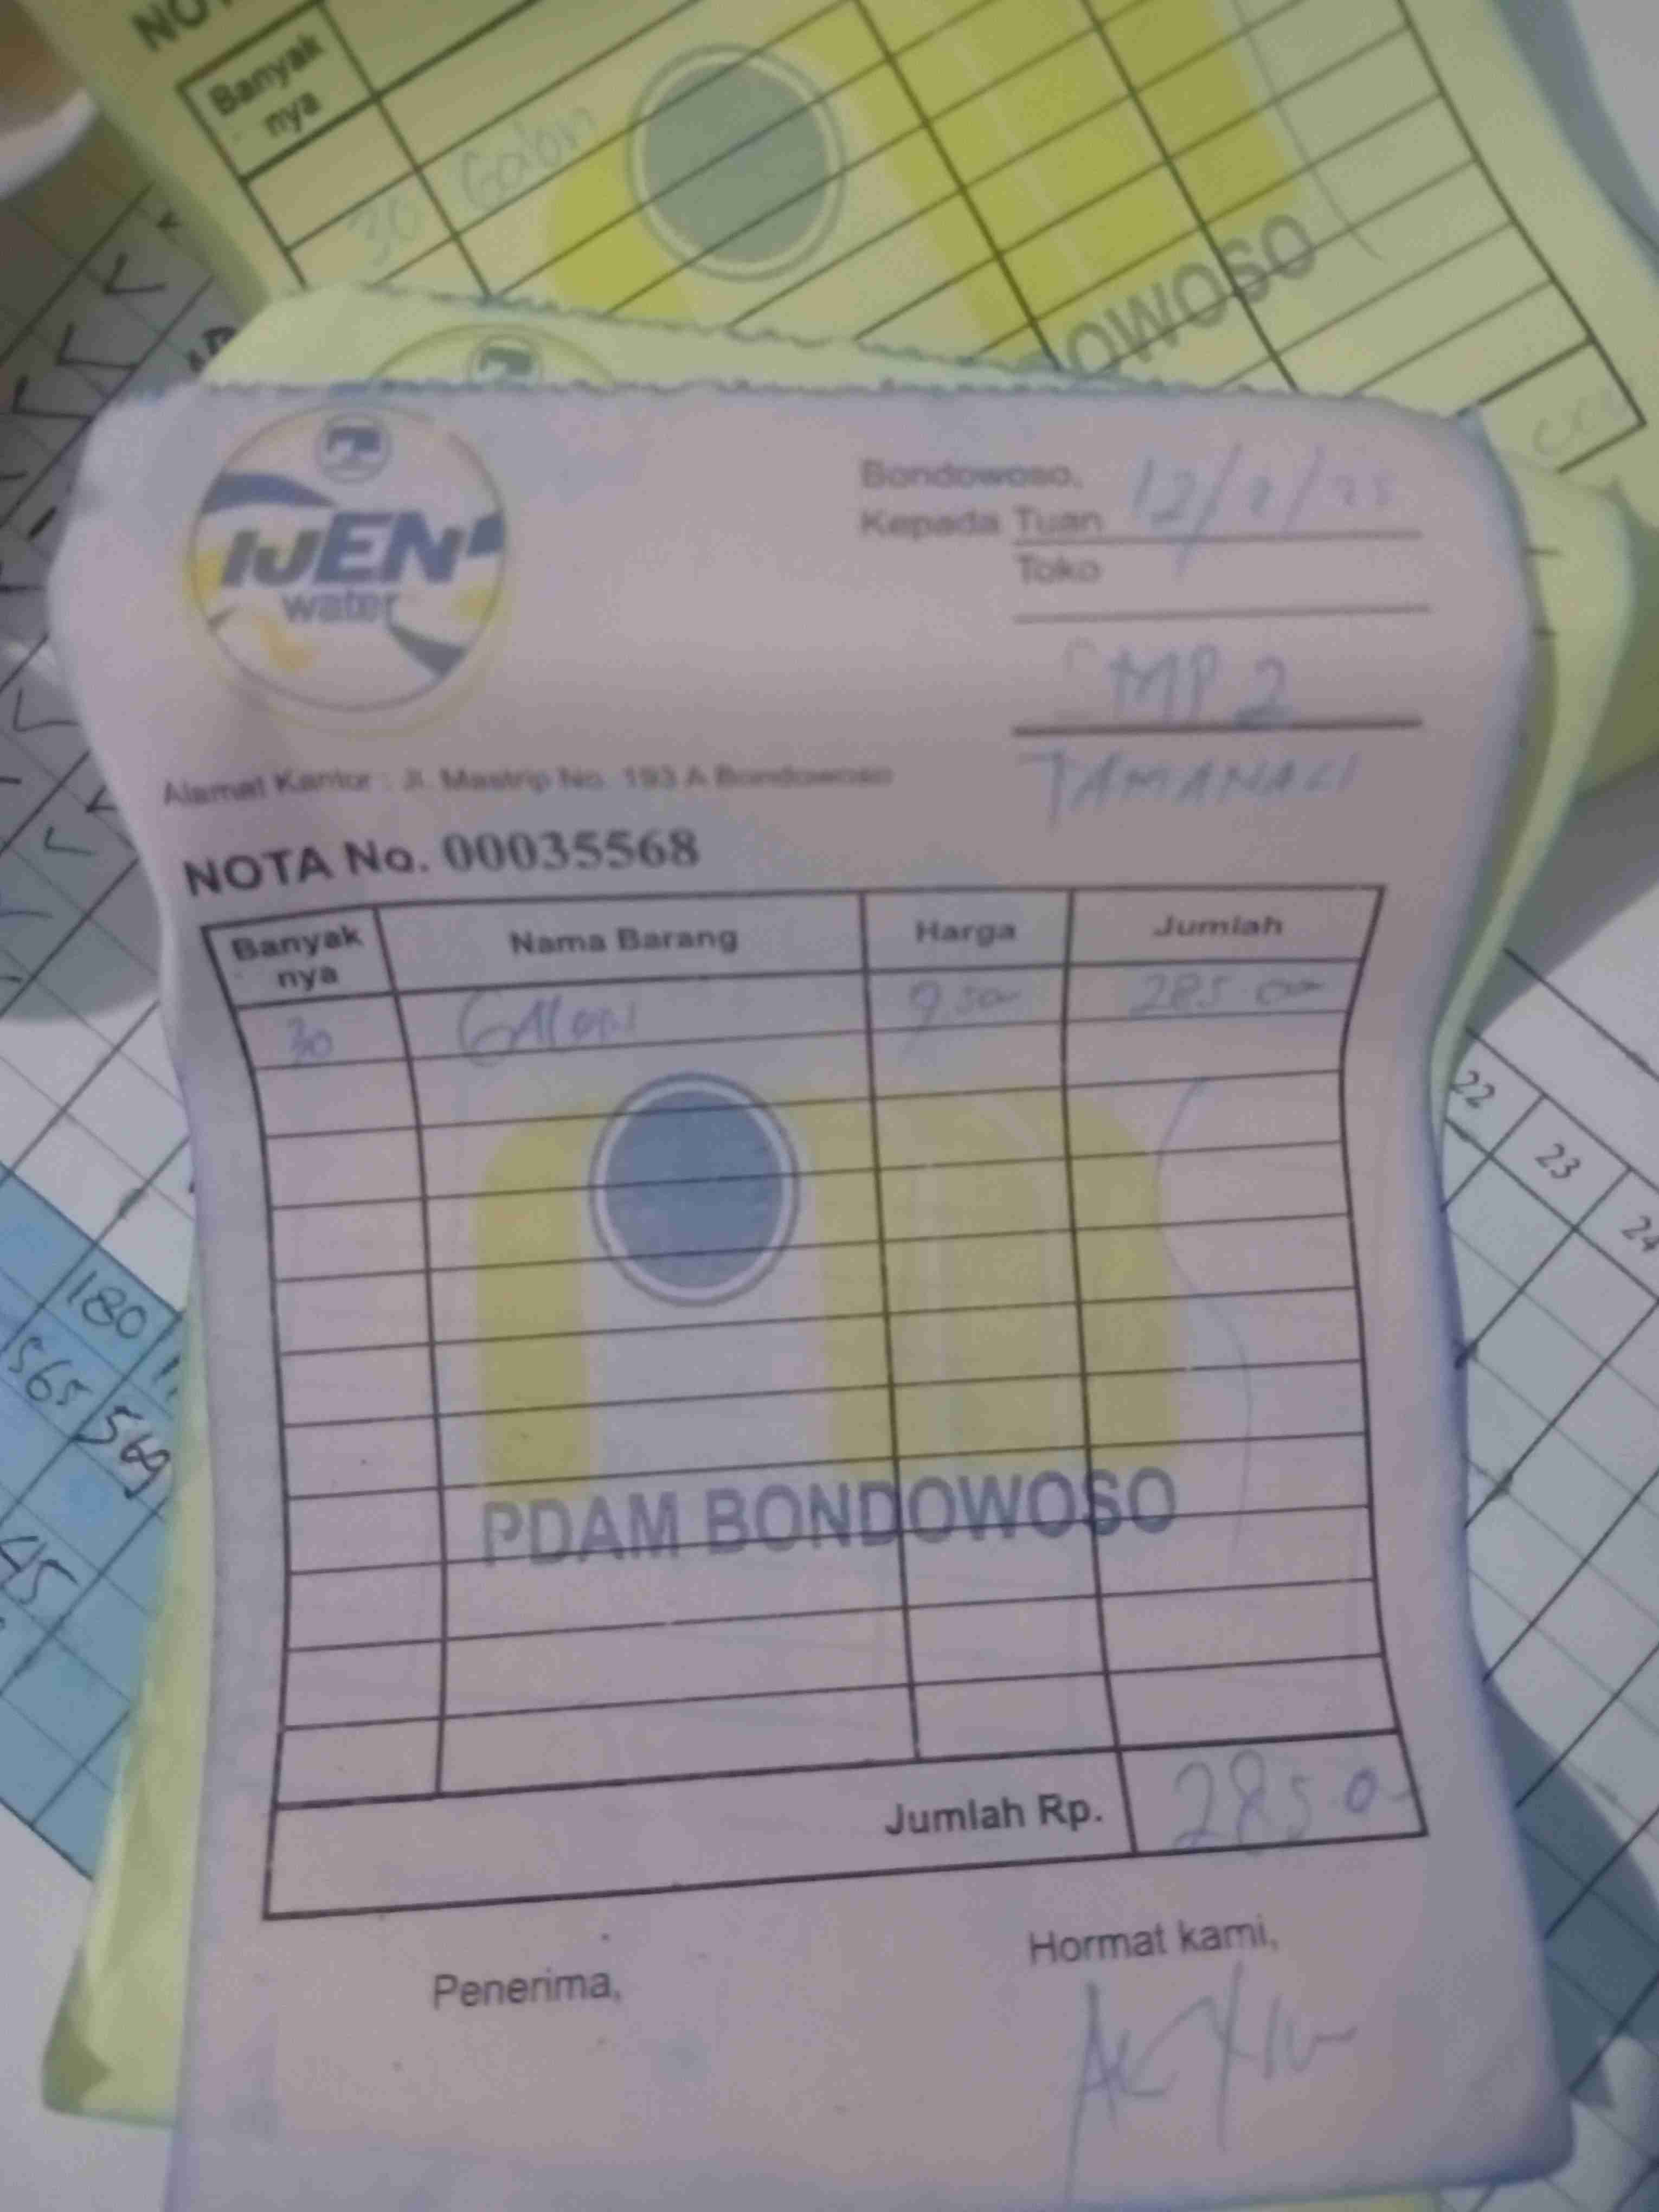 Banyak
nya
30 Galon
OWOSO
IJEN
water
Bondowoso, 12/
Kepada Tuan
Toko
MP 2
Alamat Kantor : Jl. Mastrip No. 193 A Bondowoso
NOTA No. 00035568
Banyak nya Nama Barang Harga Jumlah
30 GAlon 9.500 285.000
PDAM BONDOWOSO
Jumlah Rp. 285.0-
Penerima, Hormat kami,
22
23
24
180
565 569
45